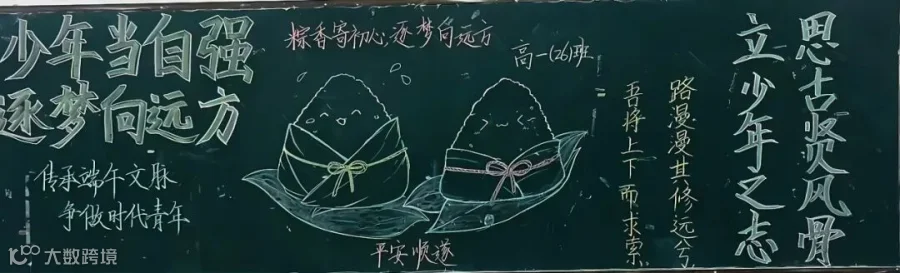 少年当自强
逐梦向远方
传承端午文脉
争做时代青年
粽香寄初心,逐梦向远方
高一(26)班
平安顺遂
路漫漫其修远兮
吾将上下而求索
思古贤风骨
立少年之志
大数跨境